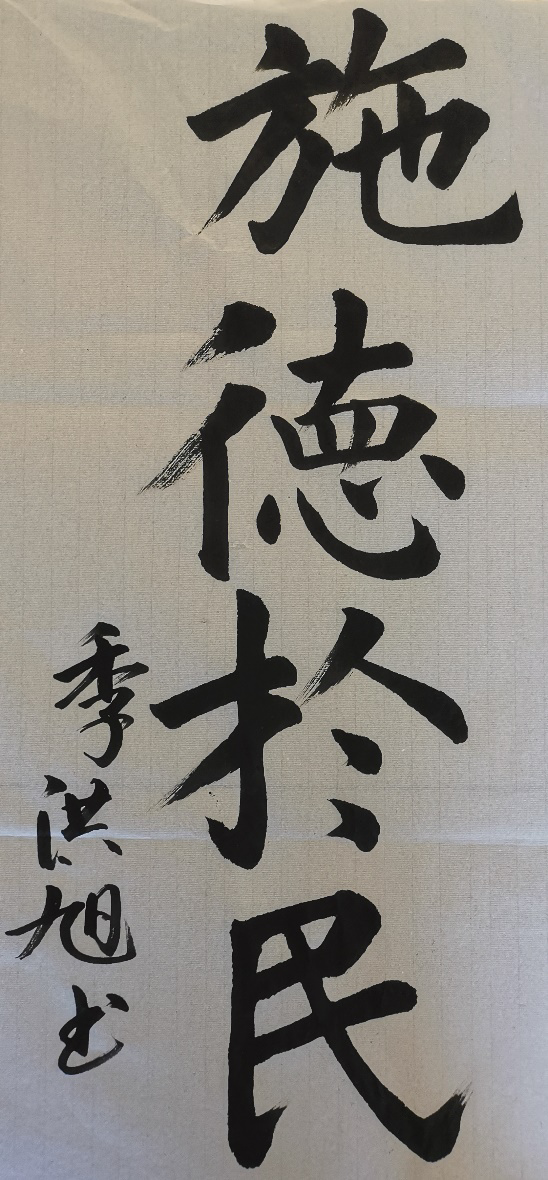 施德於民
季洪旭书